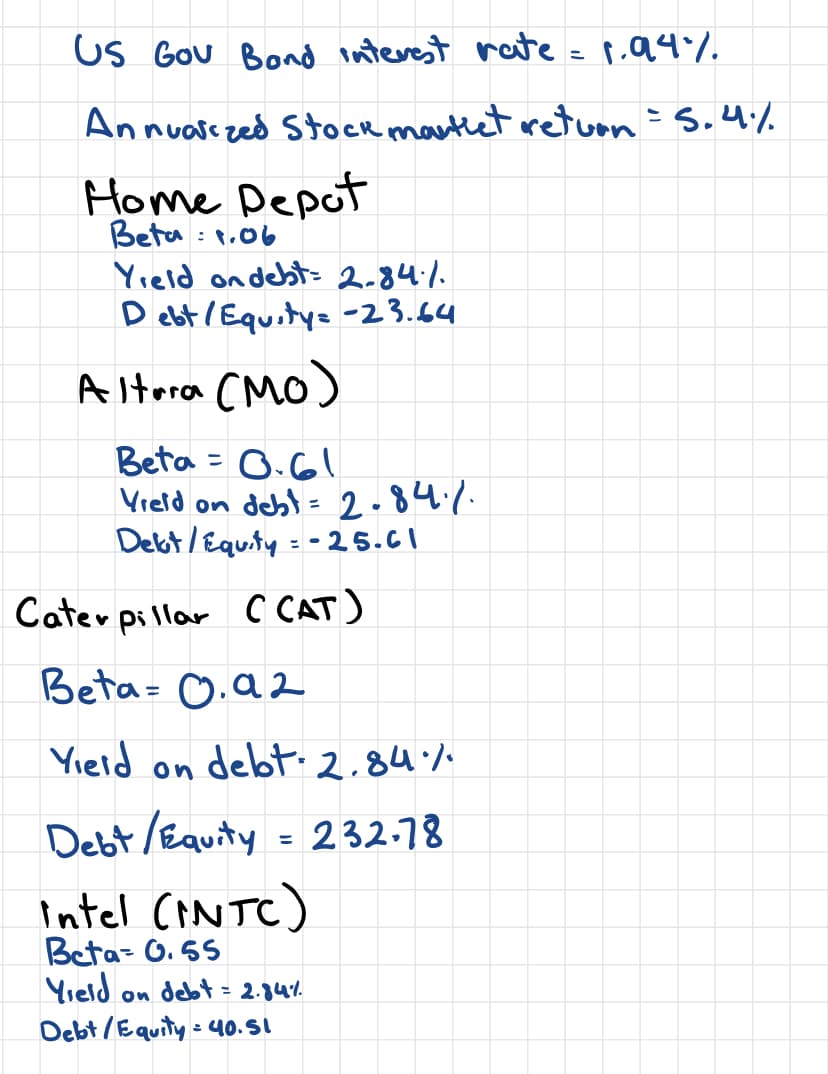 US Gov Bond interest rate = 1.94%.
Annualized Stock market return = 5.4%
Home Depot
Beta : 1.06
Yield on debt= 2.84%.
Debt/Equity= -23.64
Altura (MO)
Beta = 0.61
Yield on debt = 2.84%.
Debt/Equity = -25.61
Caterpillar (CAT)
Beta= 0.92
Yield on debt= 2.84%
Debt/Equity = 232.78
Intel (INTC)
Beta= 0.55
Yield on debt = 2.84%
Debt/Equity = 40.51